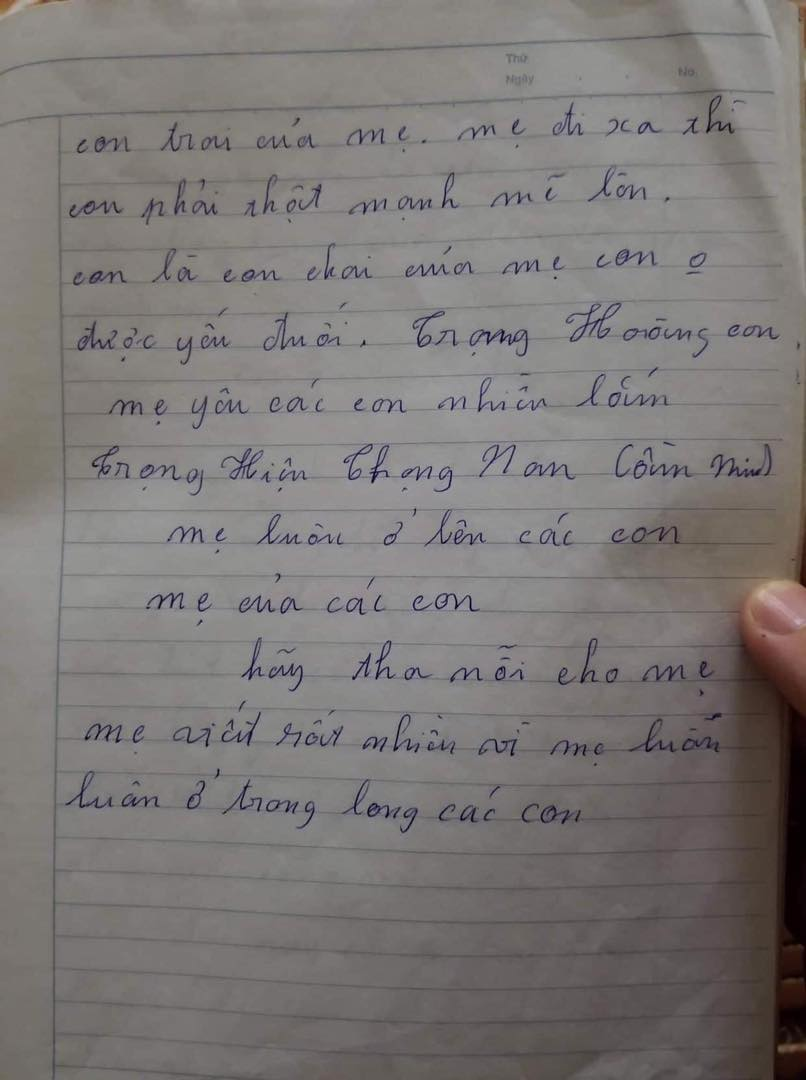 Thứ
Ngày . . No.
con trai của mẹ. mẹ đi xa thì
con phải thật mạnh mẽ lên.
con là con chai của mẹ con o
được yếu đuối. Trọng Hoàng con
mẹ yêu các con nhiều lắm
Trọng Hiện Thọng Nan
mẹ luôn ở lên các con
mẹ của các con
hãy tha nỗi cho mẹ
mẹ viết rất nhiều vì mẹ luôn
luân ở trong long các con